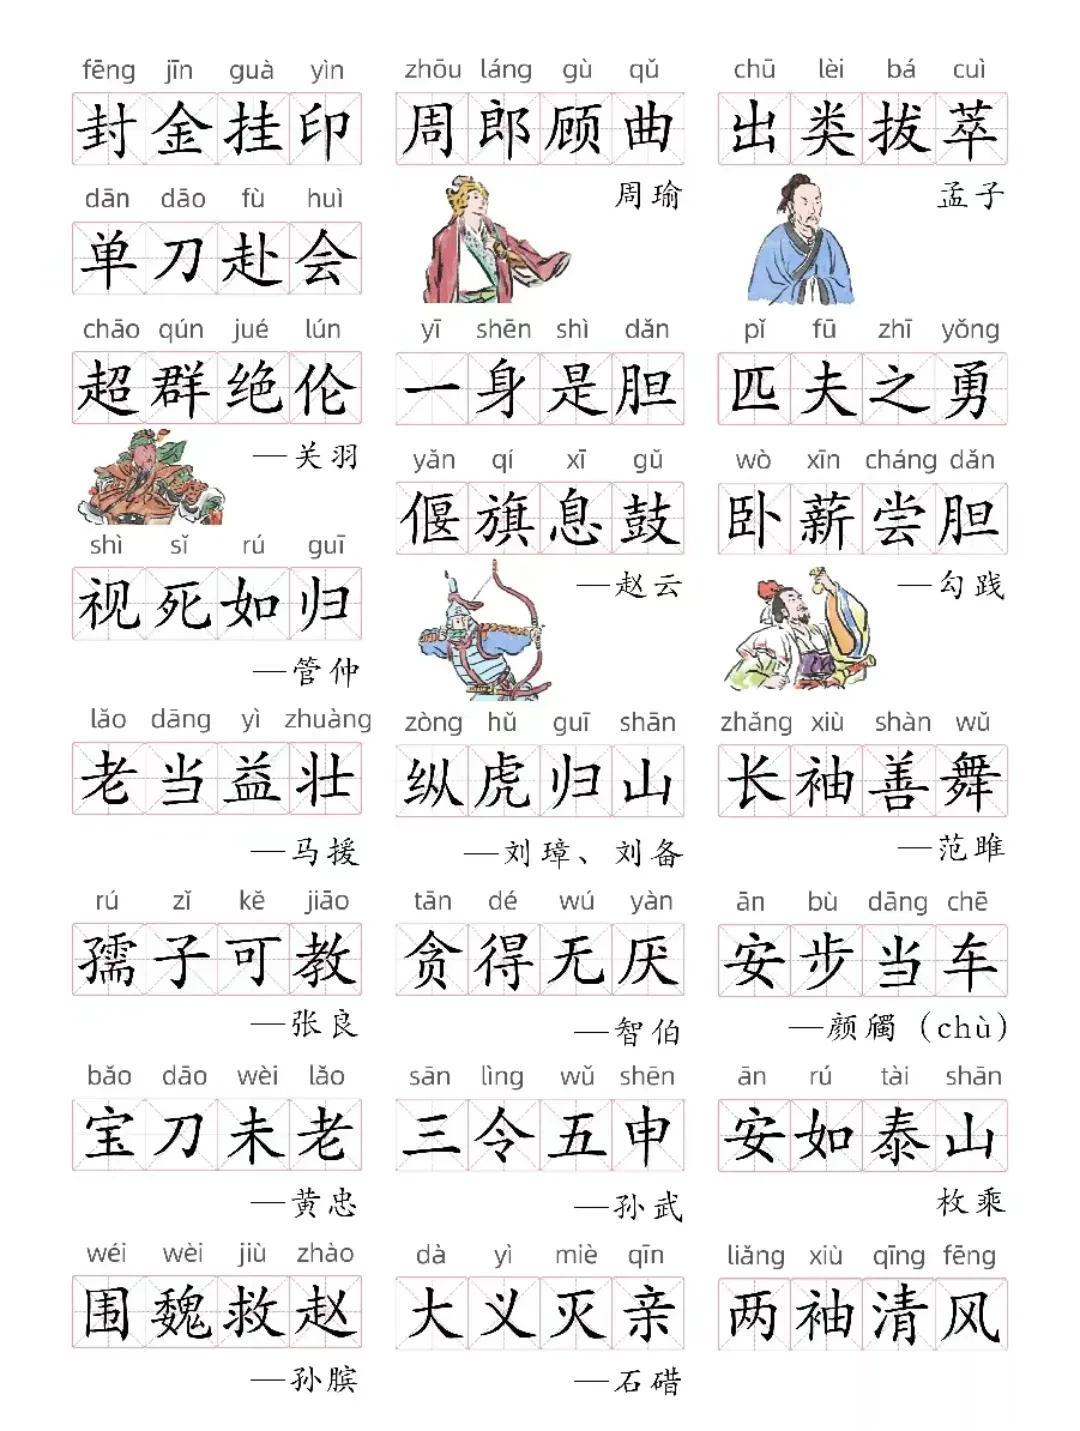 fēng jīn guà yìn
封金挂印
dān dāo fù huì
单刀赴会
chāo qún jué lún
超群绝伦
—关羽
shì sǐ rú guī
视死如归
—管仲
lǎo dāng yì zhuàng
老当益壮
—马援
rú zǐ kě jiāo
孺子可教
—张良
bǎo dāo wèi lǎo
宝刀未老
—黄忠
wéi wèi jiù zhào
围魏救赵
—孙膑
zhōu láng gù qǔ
周郎顾曲
周瑜
yī shēn shì dǎn
一身是胆
yǎn qí xī gǔ
偃旗息鼓
—赵云
zòng hǔ guī shān
纵虎归山
—刘璋、刘备
tān dé wú yàn
贪得无厌
—智伯
sān lìng wǔ shēn
三令五申
—孙武
dà yì miè qīn
大义灭亲
—石碏
chū lèi bá cuì
出类拔萃
孟子
pǐ fū zhī yǒng
匹夫之勇
wò xīn cháng dǎn
卧薪尝胆
—勾践
zhǎng xiù shàn wǔ
长袖善舞
—范雎
ān bù dāng chē
安步当车
—颜斶（chù）
ān rú tài shān
安如泰山
枚乘
liǎng xiù qīng fēng
两袖清风